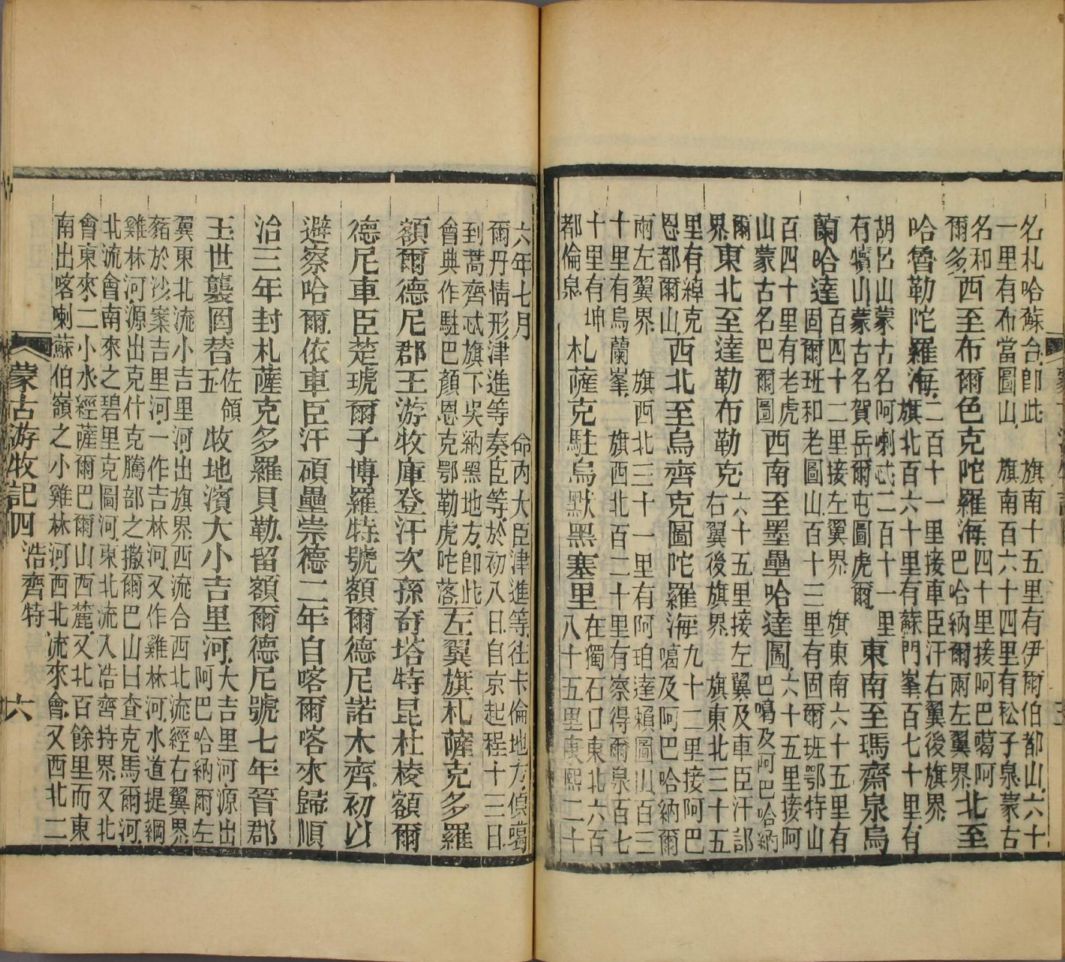 名札哈蘇台卽此　旗南十五里有伊爾伯都山六十
一里有布當圖山　旗南百六十四里有松子泉蒙古
名和
爾多西至布爾色克陀羅海四十里接阿巴噶阿
巴哈納爾左翼界北至
哈魯勒陀羅海二百十一里接車臣汗右翼後旗界
旗北百六十里有蘇門峯百七十里有
胡呂山蒙古名阿喇忒二百十一里
有犢山蒙古名賀岳爾屯圖虎爾東南至瑪齋泉烏
蘭哈達百四十二里接左翼界　旗東南六十五里有
固爾班和老圖山百十三里有固爾班鄂特山
百四十里有老虎
山蒙古名巴爾圖西南至墨壘哈達圖六十五里接阿
巴噶及阿巴哈納
爾
界東北至達勒布勒克六十五里接左翼及車臣汗部
右翼後旗界　旗東北三十五
里有綽克
恩都爾山西北至烏齊克圖陀羅海九十二里接阿巴
噶及阿巴哈納爾
兩左翼界　旗西北三十一里有阿珀達賴圖山百三
十里有烏蘭峯　旗西北百二十里有察得爾泉百七
十里有坤
都倫泉札薩克駐烏默黑塞里在獨石口東北六百
八十五里康熙二十
六年七月　命內大臣津進等往卡倫地方偵噶
爾丹情形津進等奏臣等於初八日自京起程十三日
到蒿齊忒旗下吳納黑地方卽此
會典作駐巴顏恩克鄂勒虎陀落左翼旗札薩克多羅
額爾德尼郡王游牧庫登汗次孫奇塔特昆杜棱額爾
德尼車臣楚琥爾子博羅特號額爾德尼諾木齊初以
避察哈爾依車臣汗碩壘崇德二年自喀爾喀來歸順
治三年封札薩克多羅貝勒留額爾德尼號七年晉郡
王世襲罔替佐領
五牧地濱大小吉里河大吉里河源出
阿巴哈納爾左
翼東北流小吉里河出旗界西流合西北流經右翼界
豬於沙案吉里河一作吉林河又作雞林河水道提綱
雞林河源出克什克騰部之撇爾巴山曰查克馬爾河
北流會南來之碧里克圖河東北流入浩齊特界又北
會東來二小水經薩爾巴爾山西麓又北百餘里而東
南出喀喇蘇伯嶺之小雞林河西北流來會又西北二
蒙古游牧記四　浩齊特　六